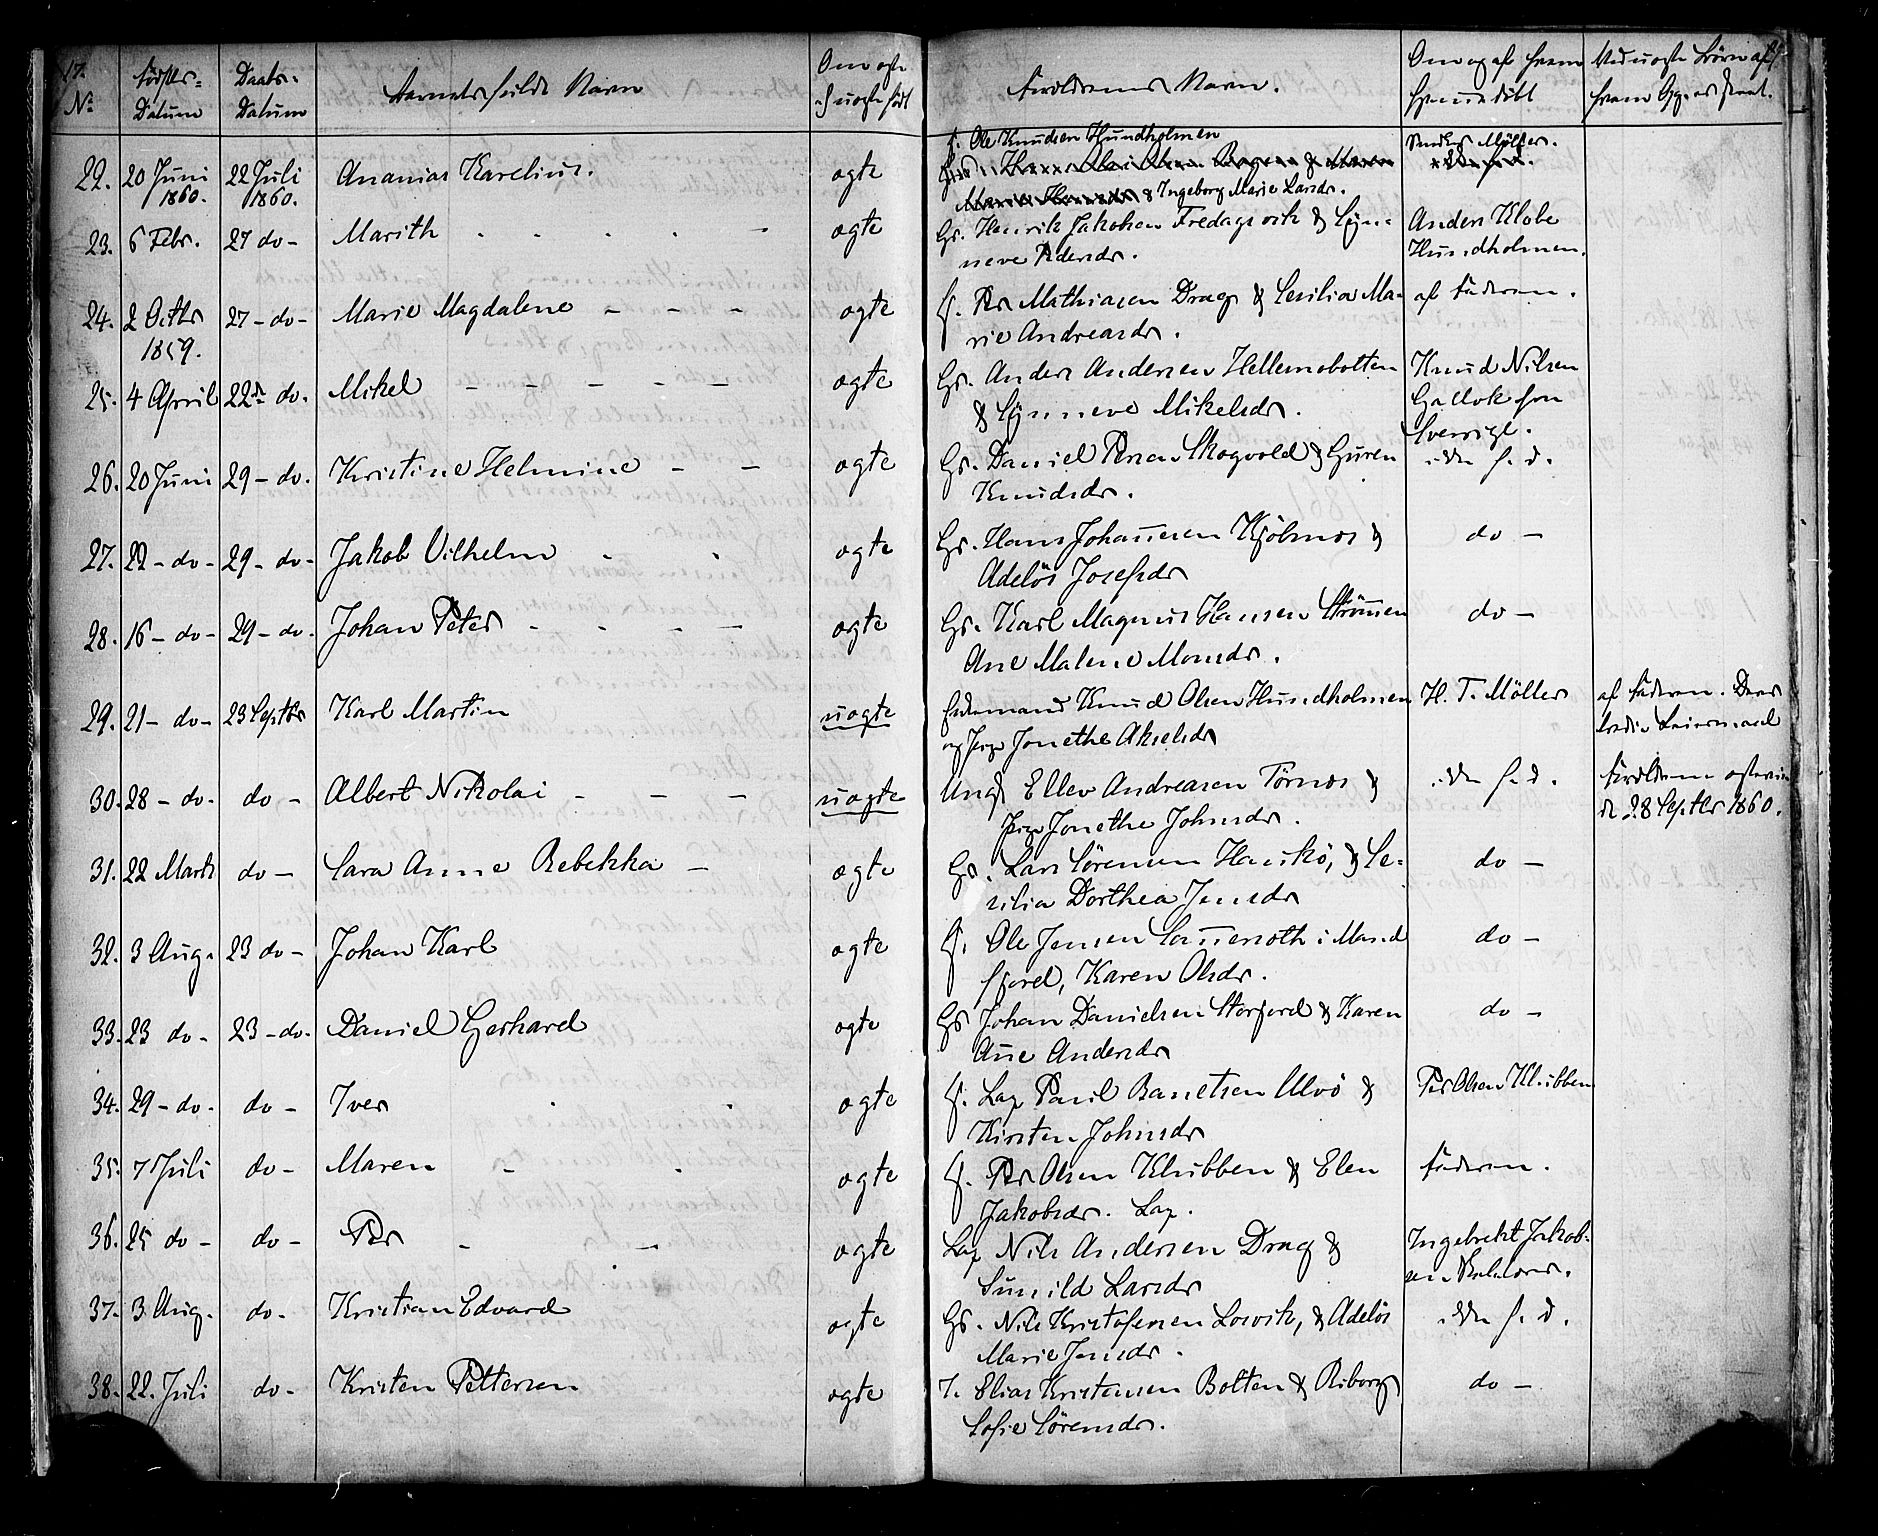 17.
No
Fødsels-
Datum
Daabs-
Datum
Barnets fulde Navn
Om ægte
uægte født
Forældrenes Navn.
Om og af hvem
hjemmedøbt
Ved uægte Børn af
hvem
22. 20 Juni 22 Juli Ananias Karelius. ægte f. Ole Knudsen Hundholmen Møller.
1860. 1860. & Ingeborg Marie Larsdr.
23. 6 Febr. 27 do - Marith ægte Gs. Henrik Jakobsen Fredagsvik & Syn-
neve Pedersdr.
Anders Klobe
Hundholmen.
24. 2 Octbr 27 - do - Marie Magdalene - - - ægte f. Per Mathiasen Drag & Cesilia Ma-
1859. rie Andreasdr.
af Faderen.
25. 4 April 22 do. Mikel - - - - - ægte Gs. Anders Andersen Hellemobotten
& Synneve Mikelsdr.
Knud Nilsen
Gallok fra
Sverrige.
26. 20 Juni 29 - do. Kristine Helmine - - ægte Gs. Daniel Persen Skogvold & Guren
Knudsdr.
ikke h. d.
27. 22 - do - 29 - do - Jakob Vilhelm ægte Gs. Hans Johannesen Kjöbnes &
Adelös Josefsdr
do -
28. 16 - do - 29 - do. Johan Peter ægte Gs. Karl Magnus Hansen Strömmen
Ane Malene Monsdr.
do -
29. 21 - do - 23 Septbr Karl Martin uægte Enkemand Knud Olsen Hundholmen
og Pige Jonethe Akselsdr
H. T. Möller
af Faderen. Deres
Leiermaal
30. 28 - do. do - Albert Nikolai - - - uægte Ungk Ellev Andreasen Törnes &
Pige Jonethe Johnsdr.
ikke h. d.
Forældrene
d. 28 Septbr 1860.
31. 22 Marts do - Sara Anne Rebekka - ægte Gs. Lars Sörensen Hauskö, & Ce-
silia Dorthea Jensdr
do -
32. 3 Aug. 23 do - Johan Karl ægte f. Ole Jensen i Mand
fjord, Karen Olsdr.
do -
33. 23 do - 23 - do. Daniel Gerhard ægte Gs Johan Danielsen Storjord & Karen
Ane Andersdr
do -
34. 29 - do. do - Iver ægte f. Lap Paul Banetsen Ulvö &
Kirsten Johnsdr
Per Olsen Klubben
35. 7 Juli do - Maren - ægte f. Per Olsen Klubben & Elen
Jakobsdr. Lap.
Faderen.
36. 25 do - do - Per - - ægte Lap Nils Andersen Drag &
Sunild Larsdr
Ingebrekt Jakob-
sen
37. 3 Aug. do. Kristian Edvard ægte Gs. Nils Kristofersen Losvik, & Adelös
Marie Jensdr.
ikke h. d.
38. 22. Juli do - Kristen Pettersen ægte I. Elias Kristensen Botten & Riborg
Sofie Sörensdr.
do -